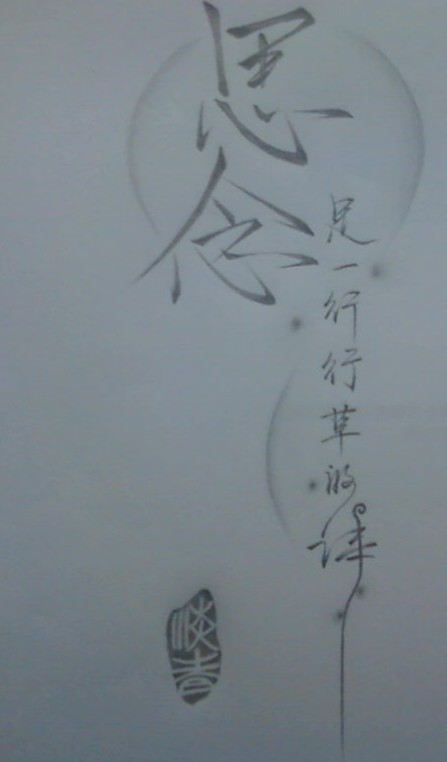 思念
是一行行草的诗